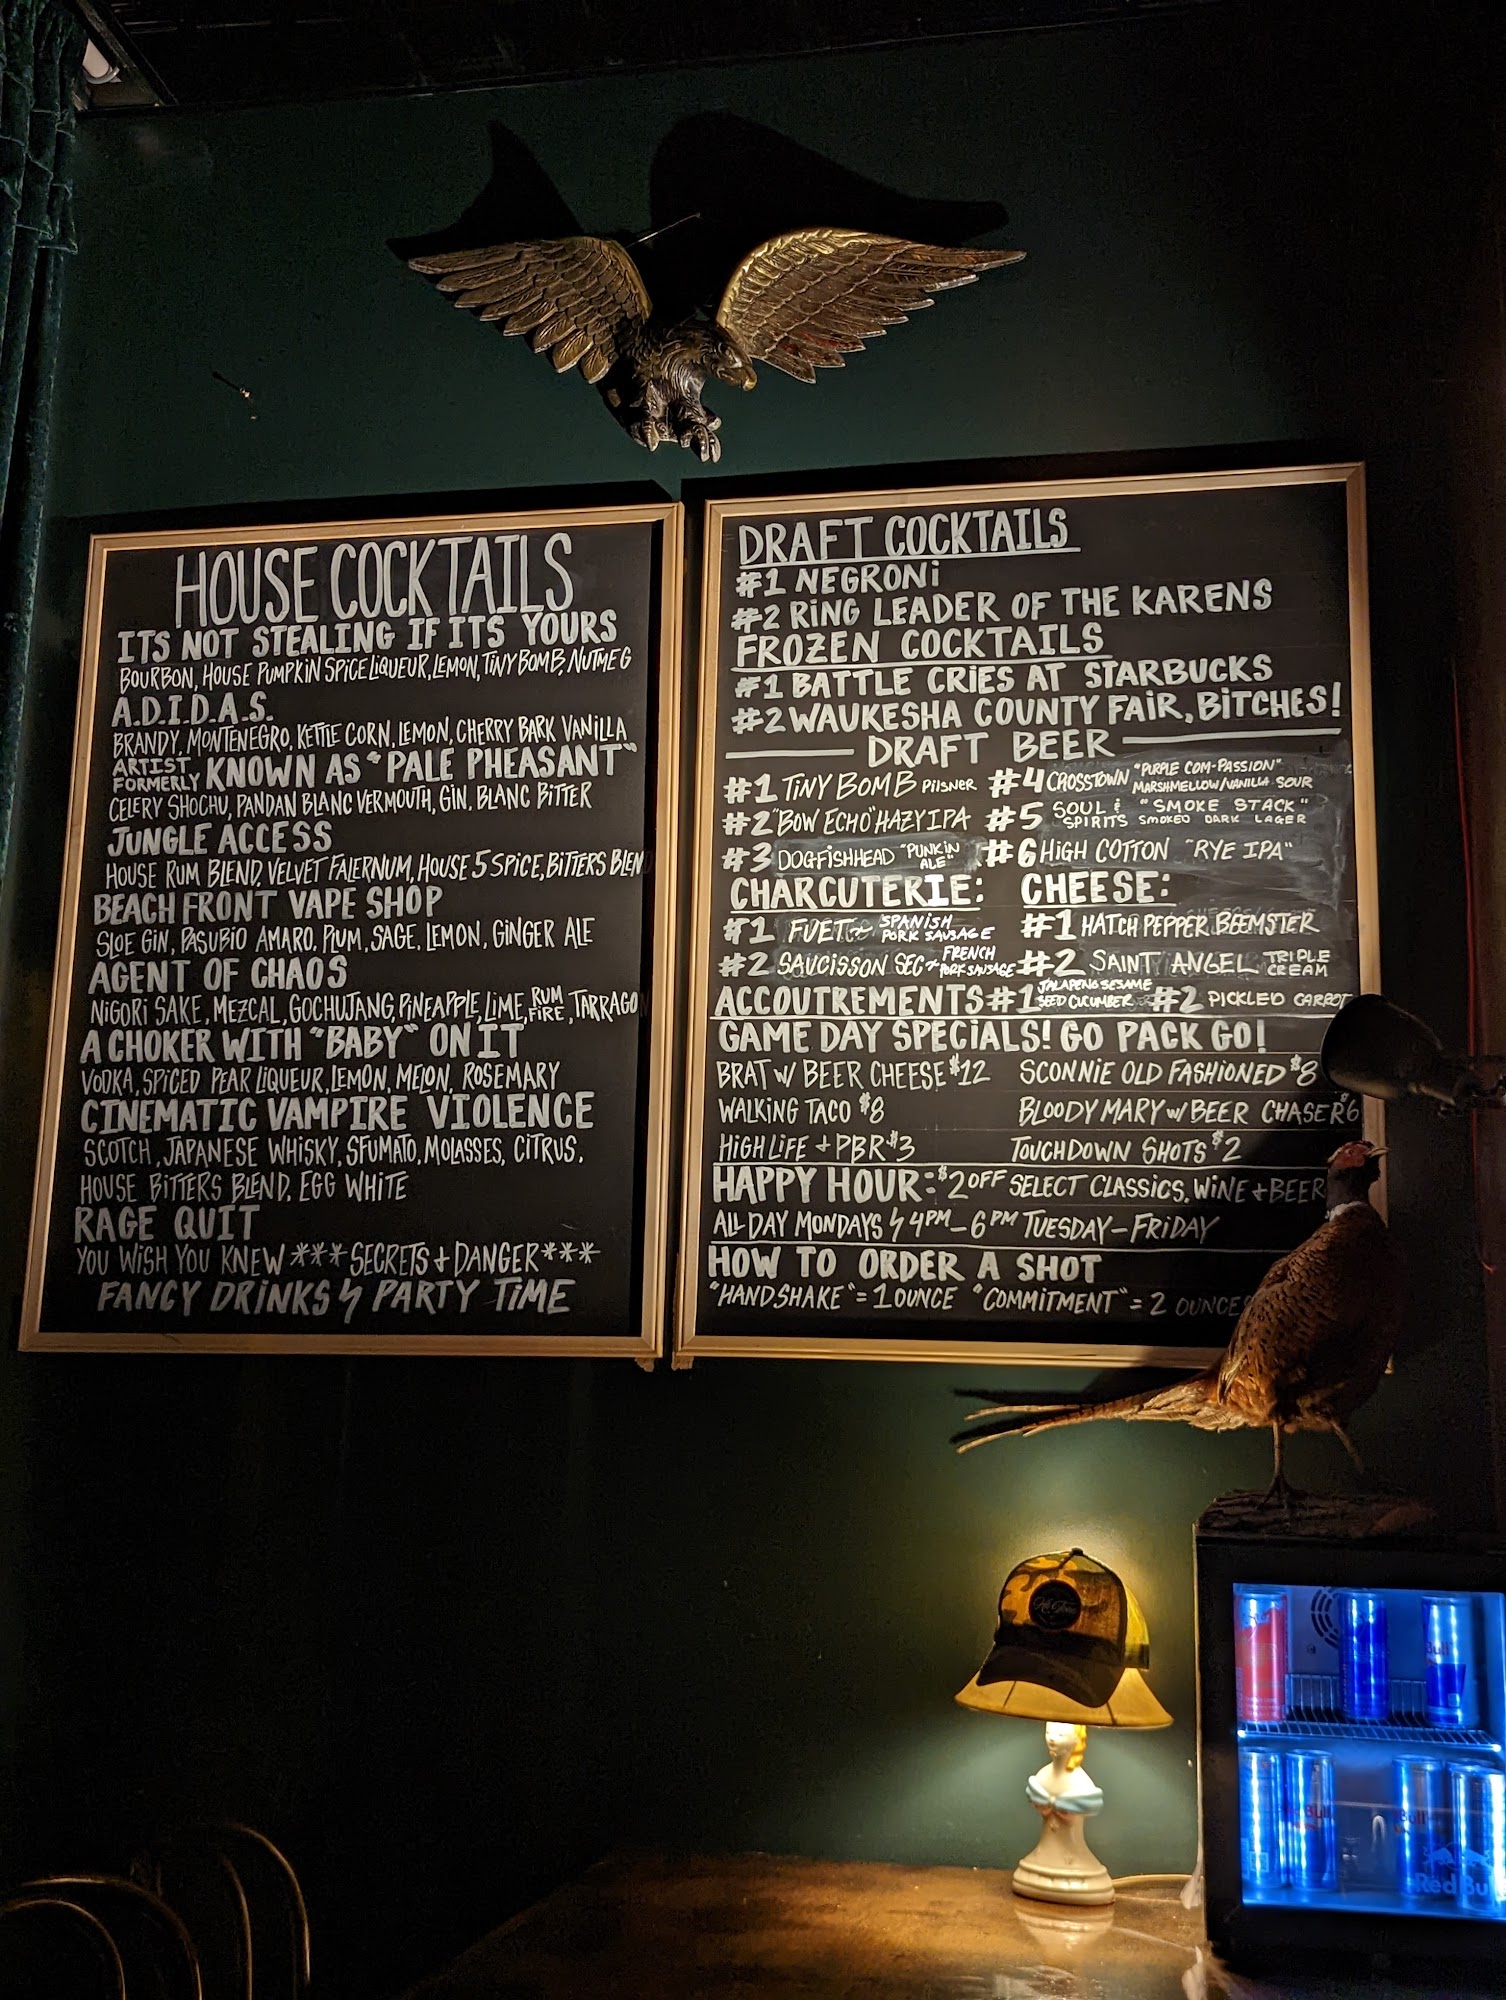 HOUSE COCKTAILS
ITS NOT STEALING IF ITS YOURS
BOURBON, HOUSE PUMPKIN SPICE LIQUEUR, LEMON, TINY BOMB, NUTMEG
A.D.I.D.A.S.
BRANDY, MONTENEGRO, KETTLE CORN, LEMON, CHERRY BARK VANILLA
ARTIST FORMERLY KNOWN AS "PALE PHEASANT"
CELERY SHOCHU, PANDAN BLANC VERMOUTH, GIN, BLANC BITTER
JUNGLE ACCESS
HOUSE RUM BLEND, VELVET FALERNUM, HOUSE 5 SPICE, BITTERS BLEND
BEACH FRONT VAPE SHOP
SLOE GIN, PASUBIO AMARO, PLUM, SAGE, LEMON, GINGER ALE
AGENT OF CHAOS
NIGORI SAKE, MEZCAL, GOCHUJANG, PINEAPPLE, LIME, RUM FIRE, TARRAGON
A CHOKER WITH "BABY" ON IT
VODKA, SPICED PEAR LIQUEUR, LEMON, MELON, ROSEMARY
CINEMATIC VAMPIRE VIOLENCE
SCOTCH, JAPANESE WHISKY, SFUMATO, MOLASSES, CITRUS,
HOUSE BITTERS BLEND, EGG WHITE
RAGE QUIT
YOU WISH YOU KNEW *** SECRETS + DANGER ***
FANCY DRINKS ϟ PARTY TIME
DRAFT COCKTAILS
#1 NEGRONI
#2 RING LEADER OF THE KARENS
FROZEN COCKTAILS
#1 BATTLE CRIES AT STARBUCKS
#2 WAUKESHA COUNTY FAIR, BITCHES!
DRAFT BEER
#1 TINY BOMB PILSNER
#2 "BOW ECHO" HAZY IPA
#3 DOGFISHHEAD "PUNKIN ALE"
#4 CROSSTOWN "PURPLE COM-PASSION" MARSHMELLOW/VANILLA SOUR
#5 SOUL & SPIRITS "SMOKE STACK" SMOKED DARK LAGER
#6 HIGH COTTON "RYE IPA"
CHARCUTERIE:
#1 FUET ~ SPANISH PORK SAUSAGE
#2 SAUCISSON SEC ~ FRENCH PORK SAUSAGE
CHEESE:
#1 HATCH PEPPER BEEMSTER
#2 SAINT ANGEL TRIPLE CREAM
ACCOUTREMENTS #1 JALAPENO SESAME SEED CUCUMBER #2 PICKLED CARROT
GAME DAY SPECIALS! GO PACK GO!
BRAT W/ BEER CHEESE $12 SCONNIE OLD FASHIONED $8
WALKING TACO $8 BLOODY MARY W/ BEER CHASER $6
HIGH LIFE + PBR $3 TOUCHDOWN SHOTS $2
HAPPY HOUR: $2 OFF SELECT CLASSICS, WINE + BEER
ALL DAY MONDAYS ϟ 4PM - 6PM TUESDAY - FRIDAY
HOW TO ORDER A SHOT
"HANDSHAKE" = 1 OUNCE "COMMITMENT" = 2 OUNCES
Red Bull